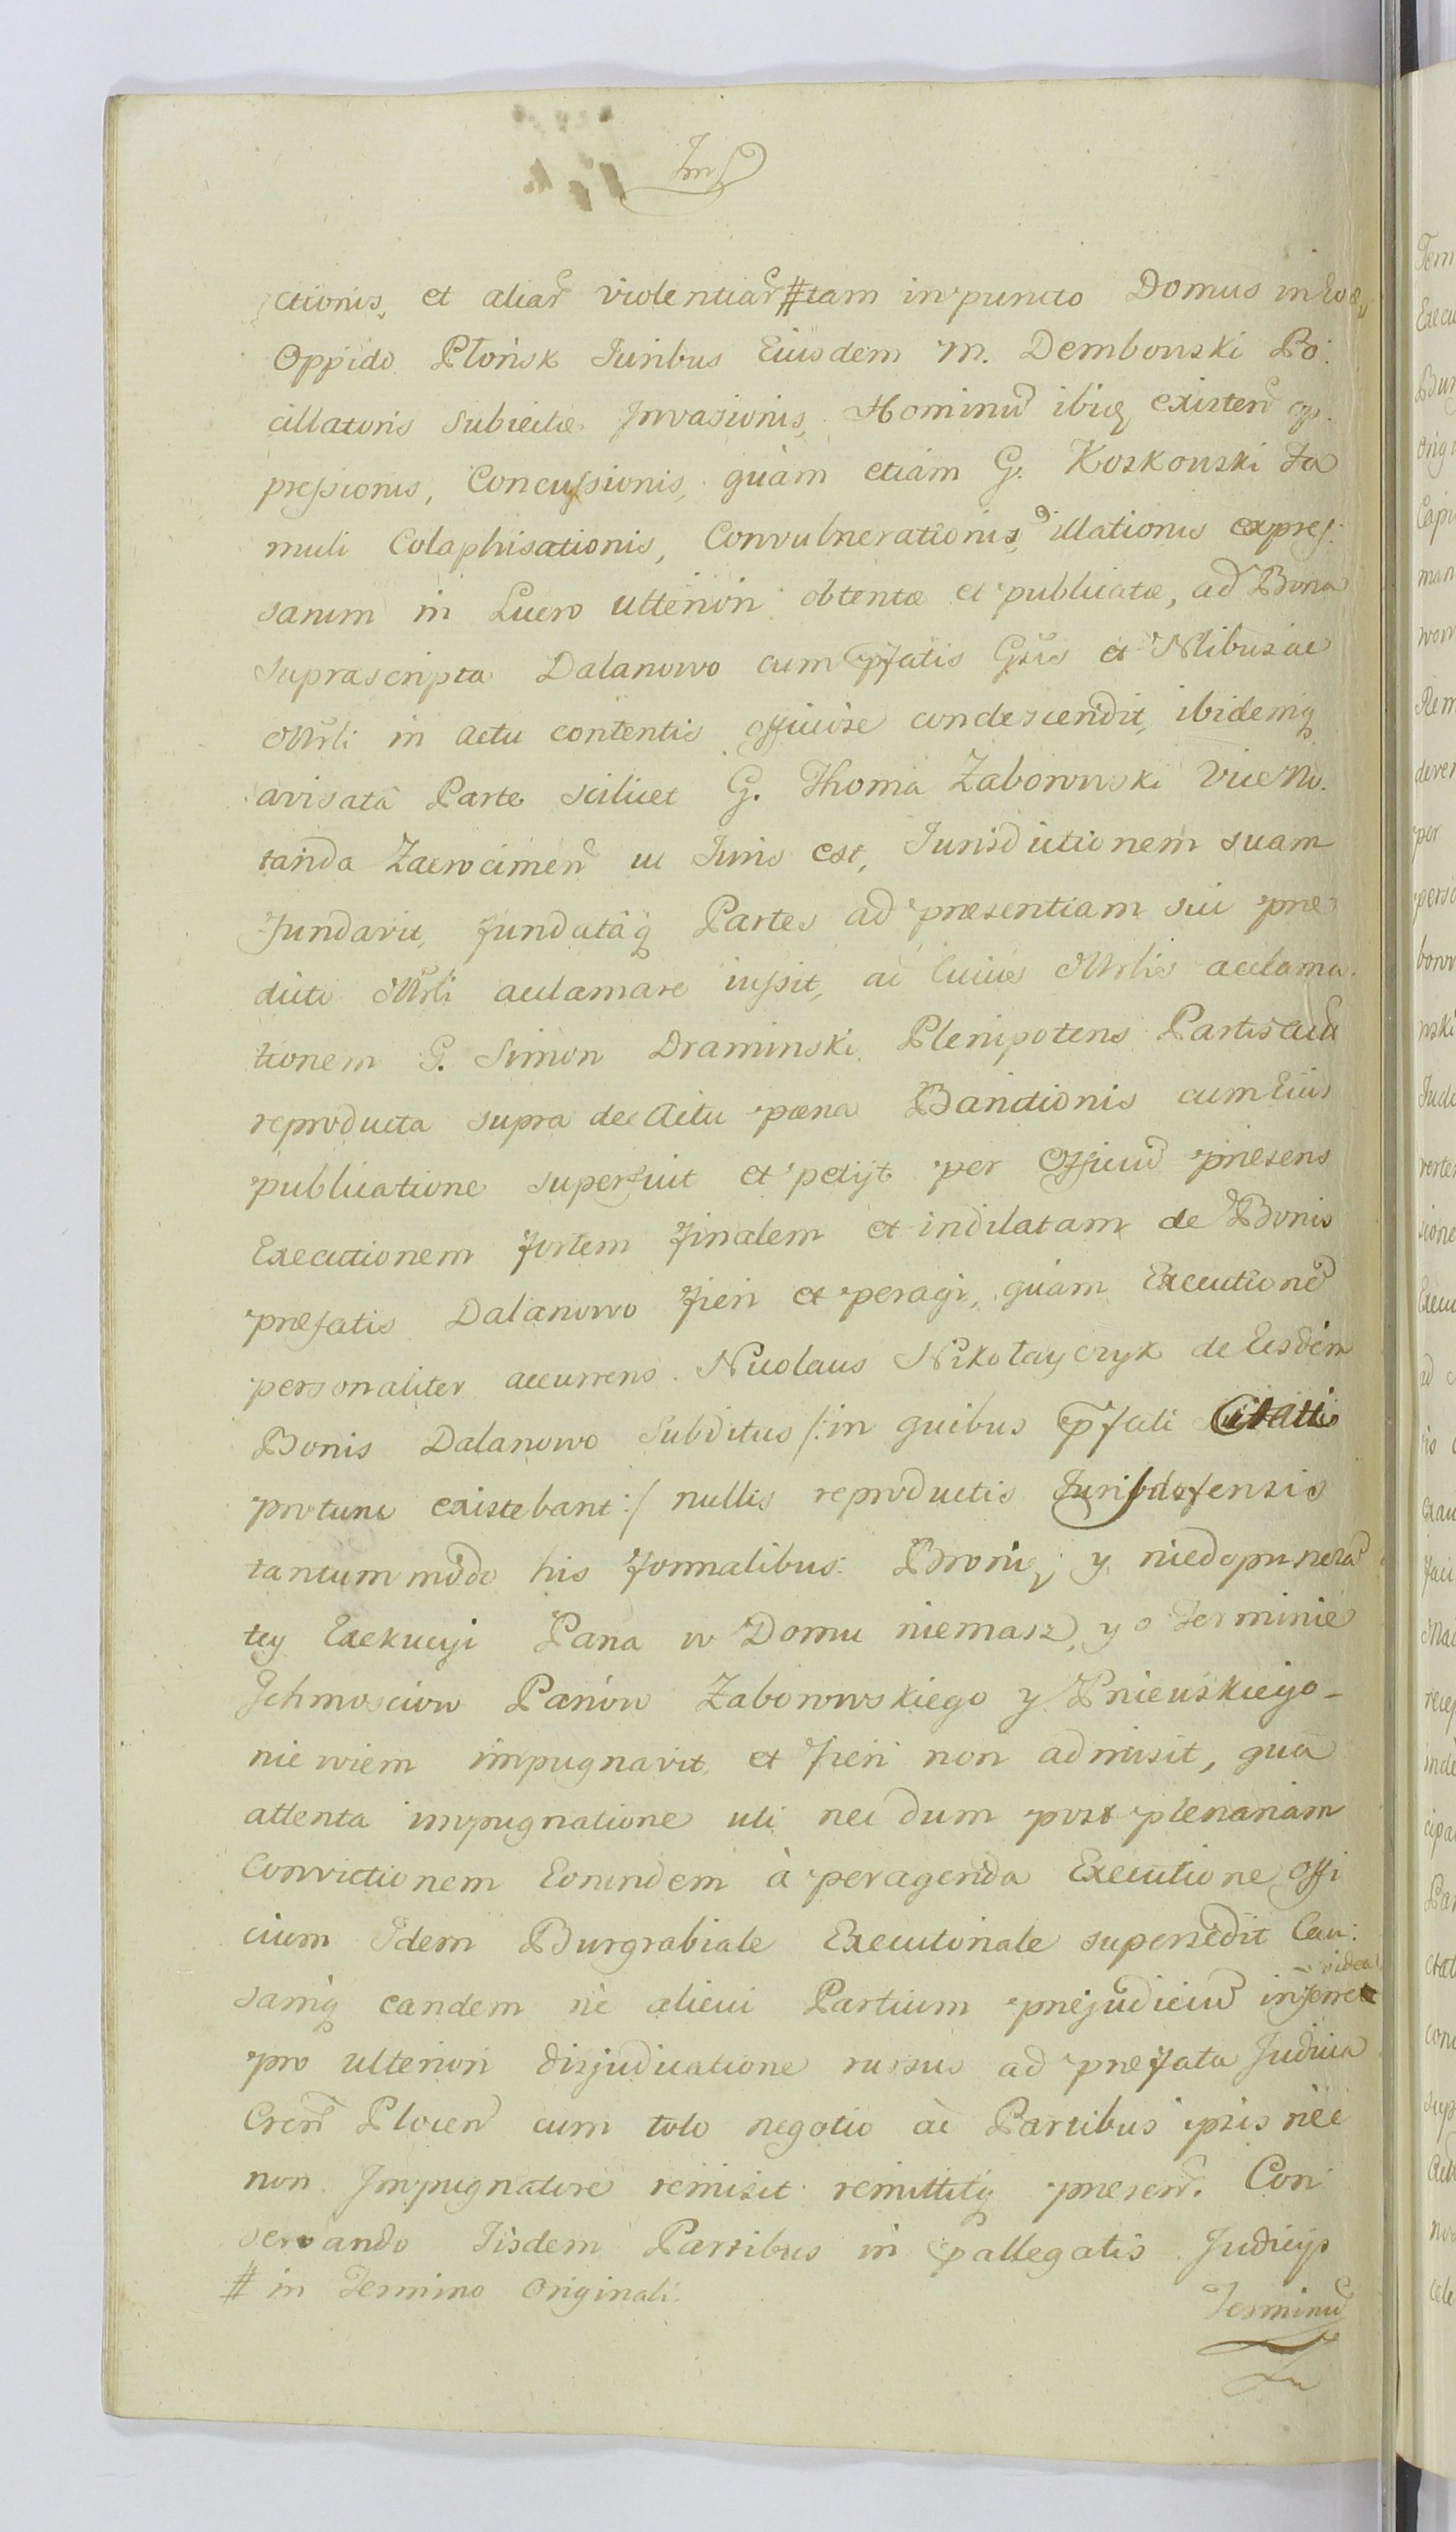 ctionis, et aliar violentiar # tam in puncto Domus in
Oppido Płońsk Juribus Eiusdem M. Dembowski Po:
cillatoris Subiectæ Invasionis, Hominũ ibiq existen op:
pressionis, Concussionis, quàm etiàm G. Koskowski Fa
muli Colaphisationis, Convulnerationis, illationis expres:
sarum in Lucro ulteriori obtentæ et publicatæ, ad Bona
Suprascripta Dalanowo cum pfatis Gsis et Nlibus ac
Mrli in actu contentis officiose condescendit, ibidemq
avisatâ Parte scilicet G. Thoma Zaborowski Vice No:
tanda Zacrocimen ut Juris est, Jurisdictionem suam
fundavit, fundatâq Partes ad præsentiam sui præ
dicto Mrli acclamare iussit, ac Cuius Mrlis acclama:
tionem G. Simon Draminski Plenipotens Partis
reproducta supra de Actu pœna Banitionis cum Eius
publicatione superfuit et petijt per Officiũ præsens
Executionem fortem finalem et indilatam de Bonis
præfatis Dalanowo fieri et peragi, quam Executionẽ
personaliter accurrens Nicolaus Nikołayczyk de Eisdem
Bonis Dalanowo Subditus /: in quibus pfati Citati
protunc existebant :/ nullis reproductis Juris defensis
tantummodo his formalibus: Bronię y niedopuszcza
tey Exekucyi Pana w Domu niemasz, y o Terminie
Jchmosciow Panów Zaborowskiego y Pniewskiego -
nie wiem impugnavit et fieri non admisit, qua
attenta impugnatione uti nec dum post plenariam
Convictionem Eorundem à peragenda Executione Offi
cium Idem Burgrabiale Executoriale supersedit Cau:
samq eandem nè alicui Partium præjudiciũ inferre videa
pro ulteriori disjudicatione rursus ad præfata Judicia
Cren Plocen cum toto negotio ac Partibus ipsis nec
non Impugnatore remisit remittitq præsen. Con
servando Iisdem Partibus in pallegatis Judicijs
# in Termino Originali.
Terminũ